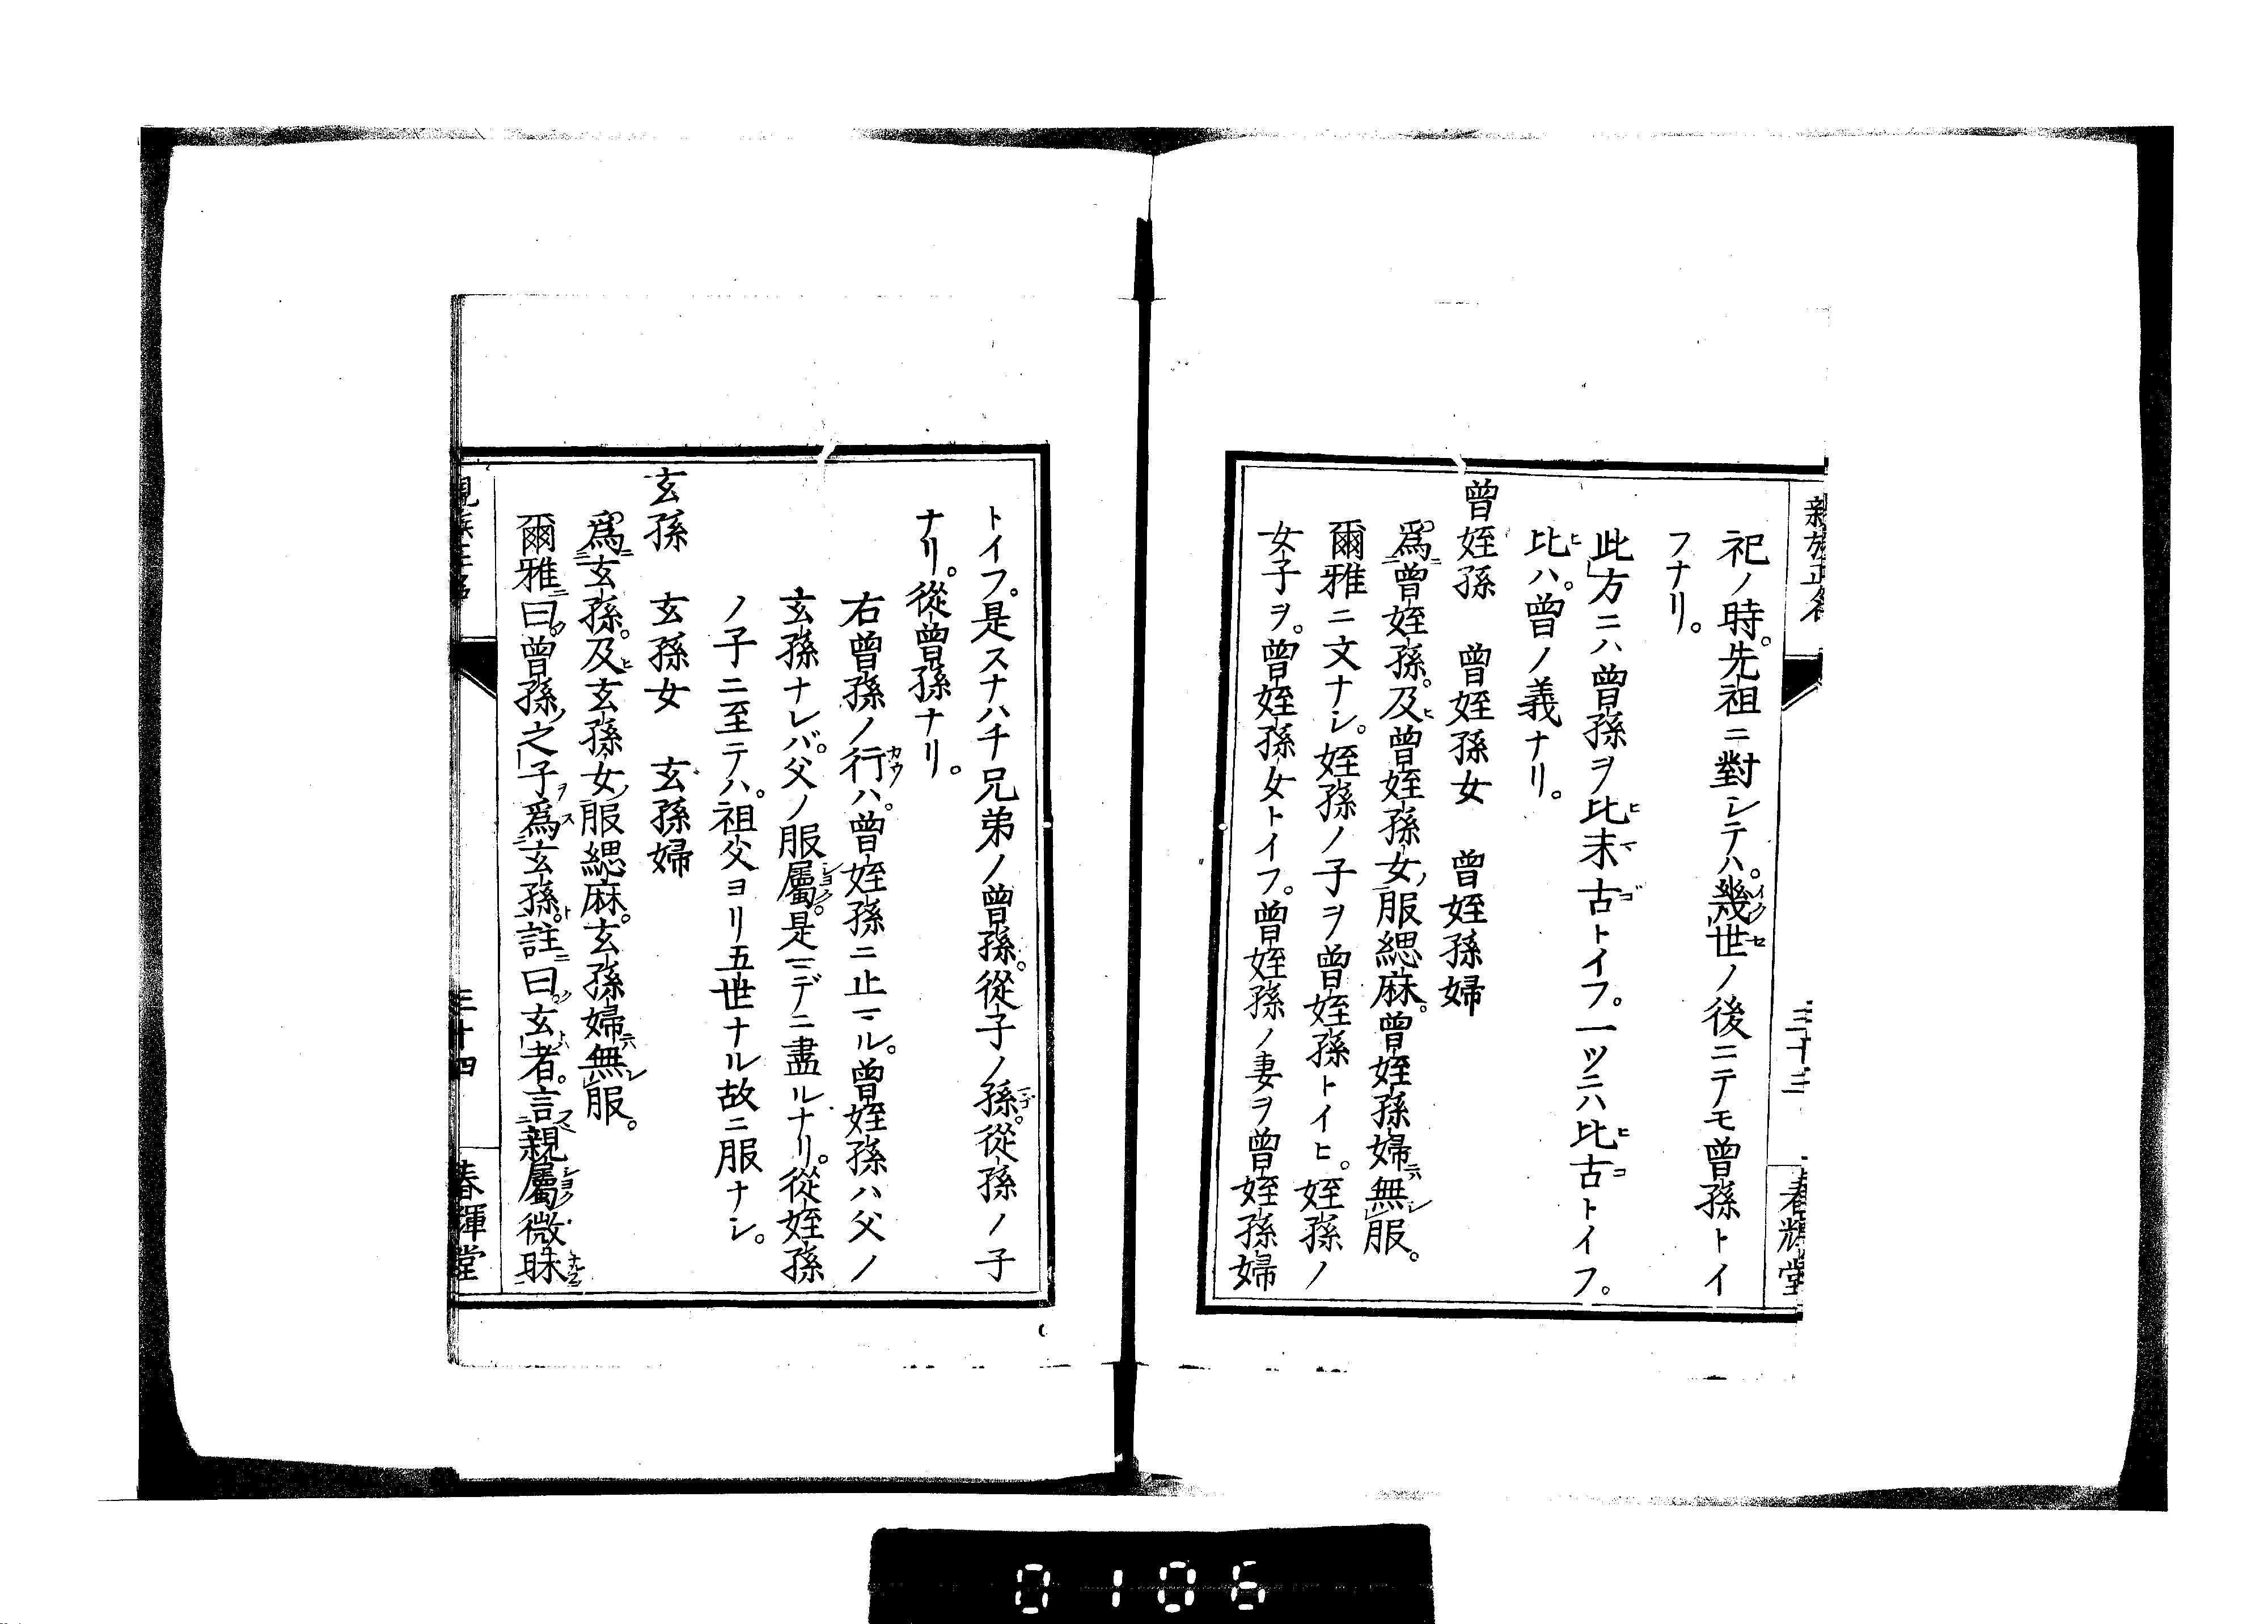 親族正名
三十三
春輝堂
祀ノ時。先祖ニ對シテハ。幾世ノ後ニテモ曾孫トイ
フナリ。
此方ニハ曾孫ヲ比末古トイフ。一ツニハ比古トイフ。
比ハ。曾ノ義ナリ。
曾姪孫　曾姪孫女　曾姪孫婦
爲曾姪孫。及曾姪孫女服緦麻。曾姪孫婦無服。
爾雅ニ文ナシ。姪孫ノ子ヲ曾姪孫トイヒ。姪孫ノ
女子ヲ。曾姪孫女トイフ。曾姪孫ノ妻ヲ曾姪孫婦
トイフ。是スナハチ兄弟ノ曾孫。從子ノ孫。從孫ノ子
ナリ。從曾孫ナリ。
右曾孫ノ行ハ。曾姪孫ニ止マル。曾姪孫ハ父ノ
玄孫ナレバ。父ノ服屬。是マデニ盡ルナリ。從姪孫
ノ子ニ至テハ。祖父ヨリ五世ナル故ニ服ナシ。
玄孫　玄孫女　玄孫婦
爲玄孫。及玄孫女服緦麻。玄孫婦無服。
爾雅曰。曾孫之子爲玄孫。註曰。玄者。言親屬微昧
親族正名
三十四
春輝堂
0106